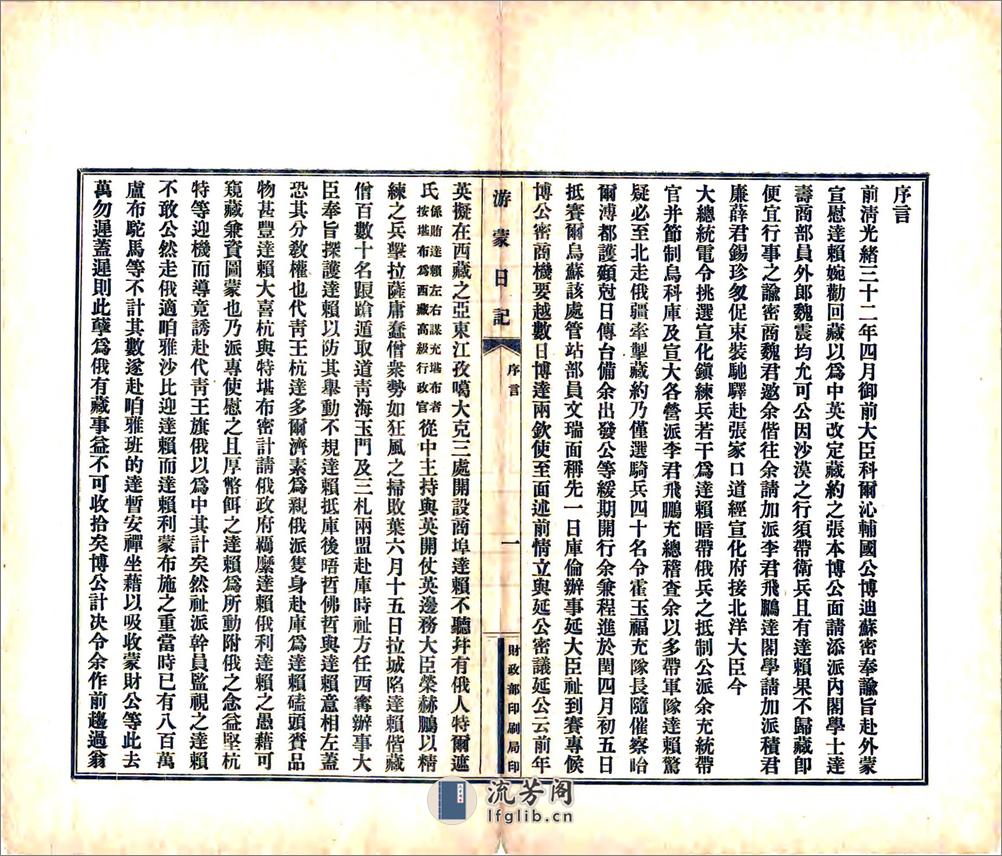 序言
前淸光緒三十二年四月御前大臣科爾沁輔國公博迪蘇密奉諭旨赴外蒙
宣慰達賴婉勸回藏以爲中英改定藏約之張本博公面請添派內閣學士達
壽商部員外郎魏震均允可公因沙漠之行須帶衛兵且有達賴果不歸藏卽
便宜行事之諭密商魏君邀余偕往余請加派李君飛鵬達閣學請加派積君
廉薛君錫珍匆促束裝馳驛赴張家口道經宣化府接北洋大臣今
大總統電令挑選宣化鎭練兵若干爲達賴暗帶俄兵之抵制公派余充統帶
官并節制烏科庫及宣大各營派李君飛鵬充總稽查余以多帶軍隊達賴驚
疑必至北走俄疆牽掣藏約乃僅選騎兵四十名令霍玉福充隊長隨催察哈
爾溥都護頲尅日傳台備余出發公等緩期開行余兼程進於閏四月初五日
抵賽爾烏蘇該處管站部員文瑞面稱先一日庫倫辦事延大臣祉到賽專候
博公密商機要越數日博達兩欽使至面述前情立與延公密議延公云前年
游蒙日記
序言
一
財政部印刷局印
英擬在西藏之亞東江孜噶大克三處開設商埠達賴不聽幷有俄人特爾遮
氏係賄達賴左右謀充堪布者按堪布爲西藏高級行政官從中主持與英開仗英邊務大臣榮赫鵬以精
練之兵擊拉薩庸蠢僧衆勢如狂風之掃敗葉六月十五日拉城陷達賴偕藏
僧百數十名踉蹌遁取道靑海玉門及三札兩盟赴庫時祉方任西甯辦事大
臣奉旨探護達賴以防其舉動不規達賴抵庫後晤哲佛哲與達賴意相左蓋
恐其分敎權也代靑王杭達多爾濟素爲親俄派隻身赴庫爲達賴磕頭賫品
物甚豐達賴大喜杭與特堪布密計請俄政府覊縻達賴俄利達賴之愚藉可
窺藏兼資圖蒙也乃派專使慰之且厚幣餌之達賴爲所動附俄之念益堅杭
特等迎機而導竟誘赴代靑王旗俄以爲中其計矣然祉派幹員監視之達賴
不敢公然走俄適咱雅沙比迎達賴而達賴利蒙布施之重當時已有八百萬
盧布駝馬等不計其數遂赴咱雅班的達暫安禪坐藉以吸收蒙財公等此去
萬勿遲蓋遲則此孽爲俄有藏事益不可收拾矣博公計决令余作前趨過翁
流芳阁
lfglib.cn